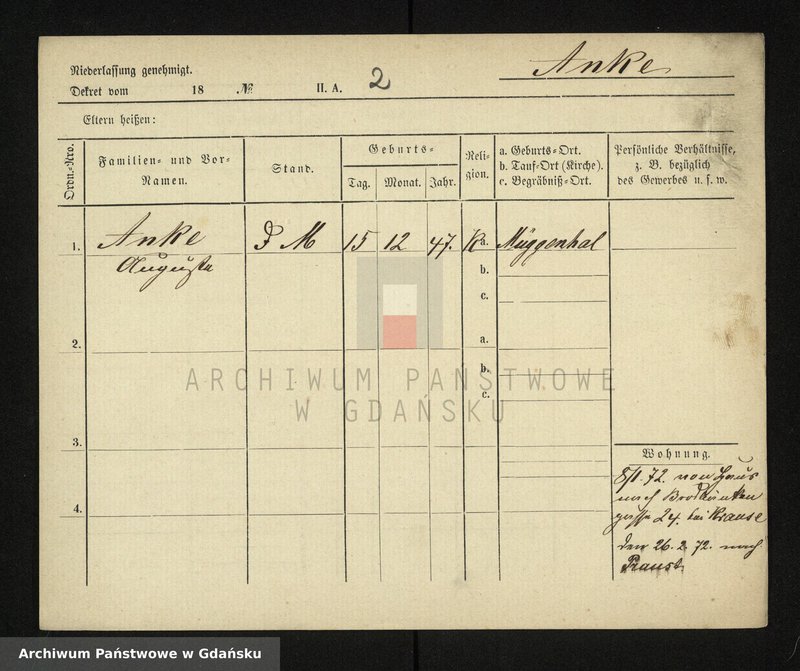 Niederlassung genehmigt.
Anke
Dekret vom 18 № II. A. 2
Eltern heißen:
Ordn.-Nro.
Familien- und Vor-
Namen.
Stand.
Geburts-
Tag. Monat. Jahr.
Reli-
gion.
a. Geburts-Ort.
b. Tauf-Ort (Kirche).
c. Begräbniß-Ort.
Persönliche Verhältnisse,
z. B. bezüglich
des Gewerbes u. s. w.
1. Anke D M 15 12 47. K a. Müggenhal
Augusta
b.
c.
2. a.
b.
c.
ARCHIWUM PAŃSTWOWE
W GDAŃSKU
3.
4.
Wohnung.
8/1. 72. von Haus
nach Brodbänken
gasse 24. bei Krause
den 26. 2. 72. nach
Praust.
Archiwum Państwowe w Gdańsku